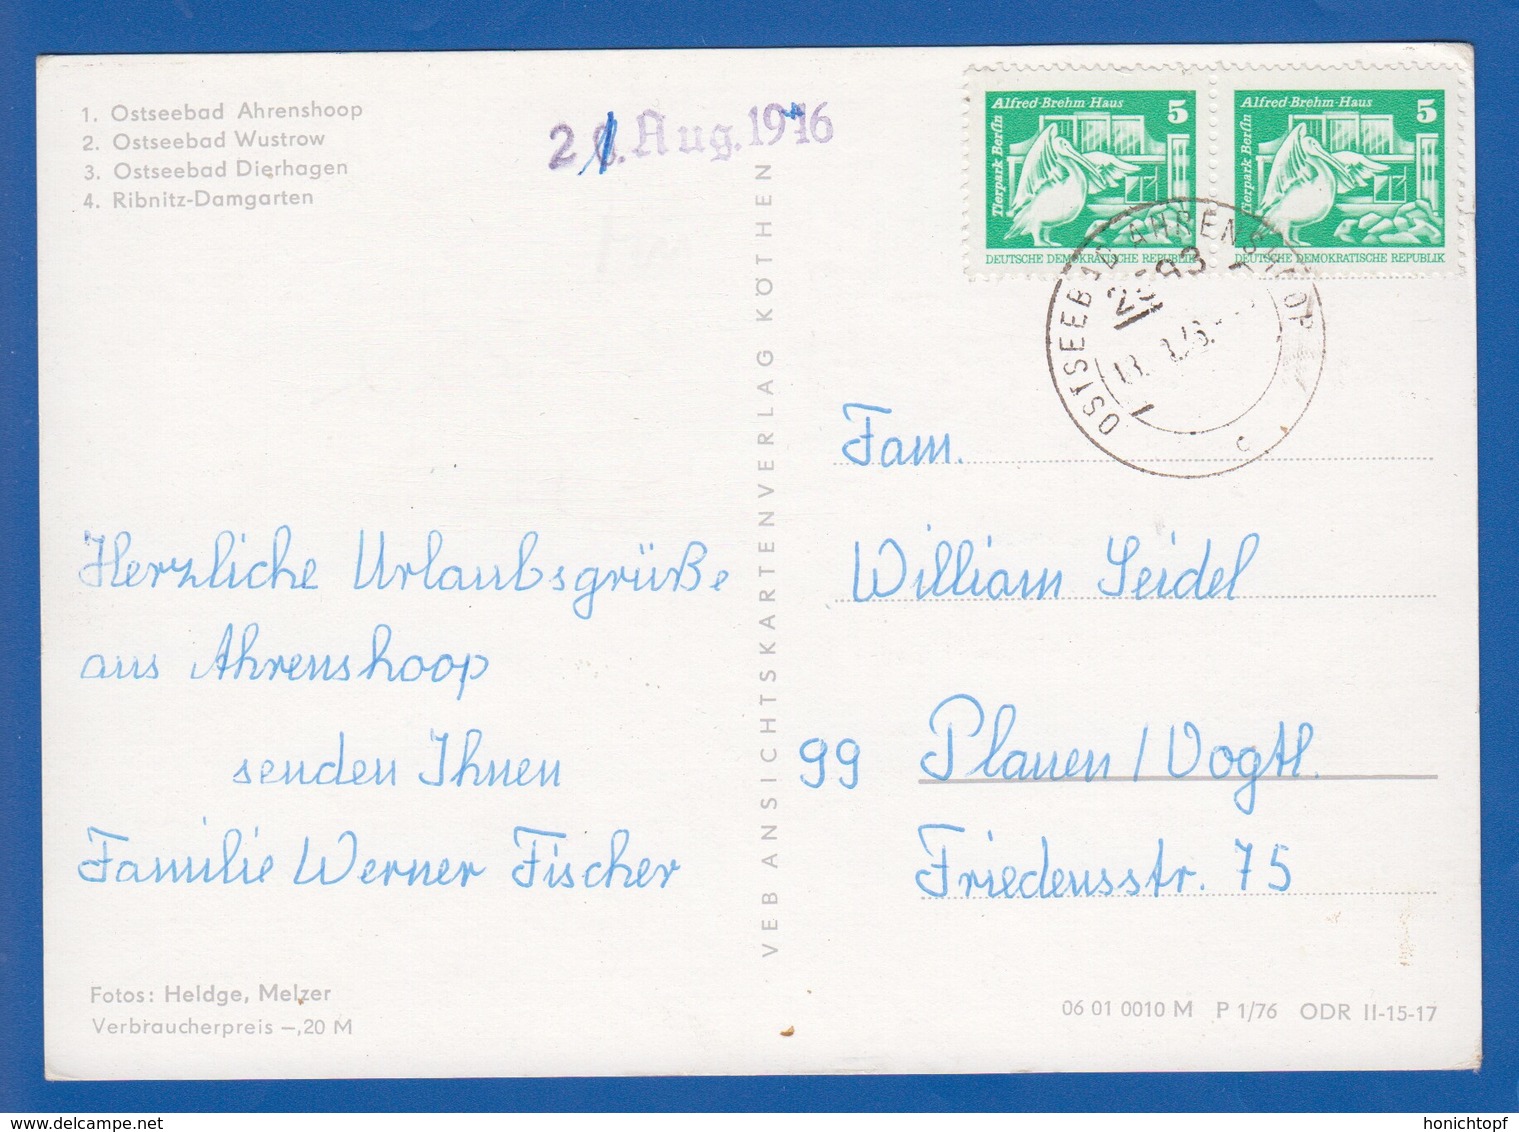 1. Ostseebad Ahrenshoop
2. Ostseebad Wustrow
3. Ostseebad Dierhagen
4. Ribnitz-Damgarten
Aug. 1976
Alfred-Brehm-Haus 5
Tierpark Berlin
DEUTSCHE DEMOKRATISCHE REPUBLIK
Alfred-Brehm-Haus 5
Tierpark Berlin
DEUTSCHE DEMOKRATISCHE REPUBLIK
OSTSEEBAD AHRENSHOOP
c
Herzliche Urlaubsgrüße
aus Ahrenshoop
senden Ihnen
Familie Werner Fischer
VEB ANSICHTSKARTENVERLAG KÖTHEN
Fam.
William Seidel
99 Plauen/Vogtl.
Friedensstr. 75
Fotos: Heldge, Melzer
Verbraucherpreis —,20 M
06 01 0010 M P 1/76 ODR II-15-17
www.delcampe.net
honichtopf